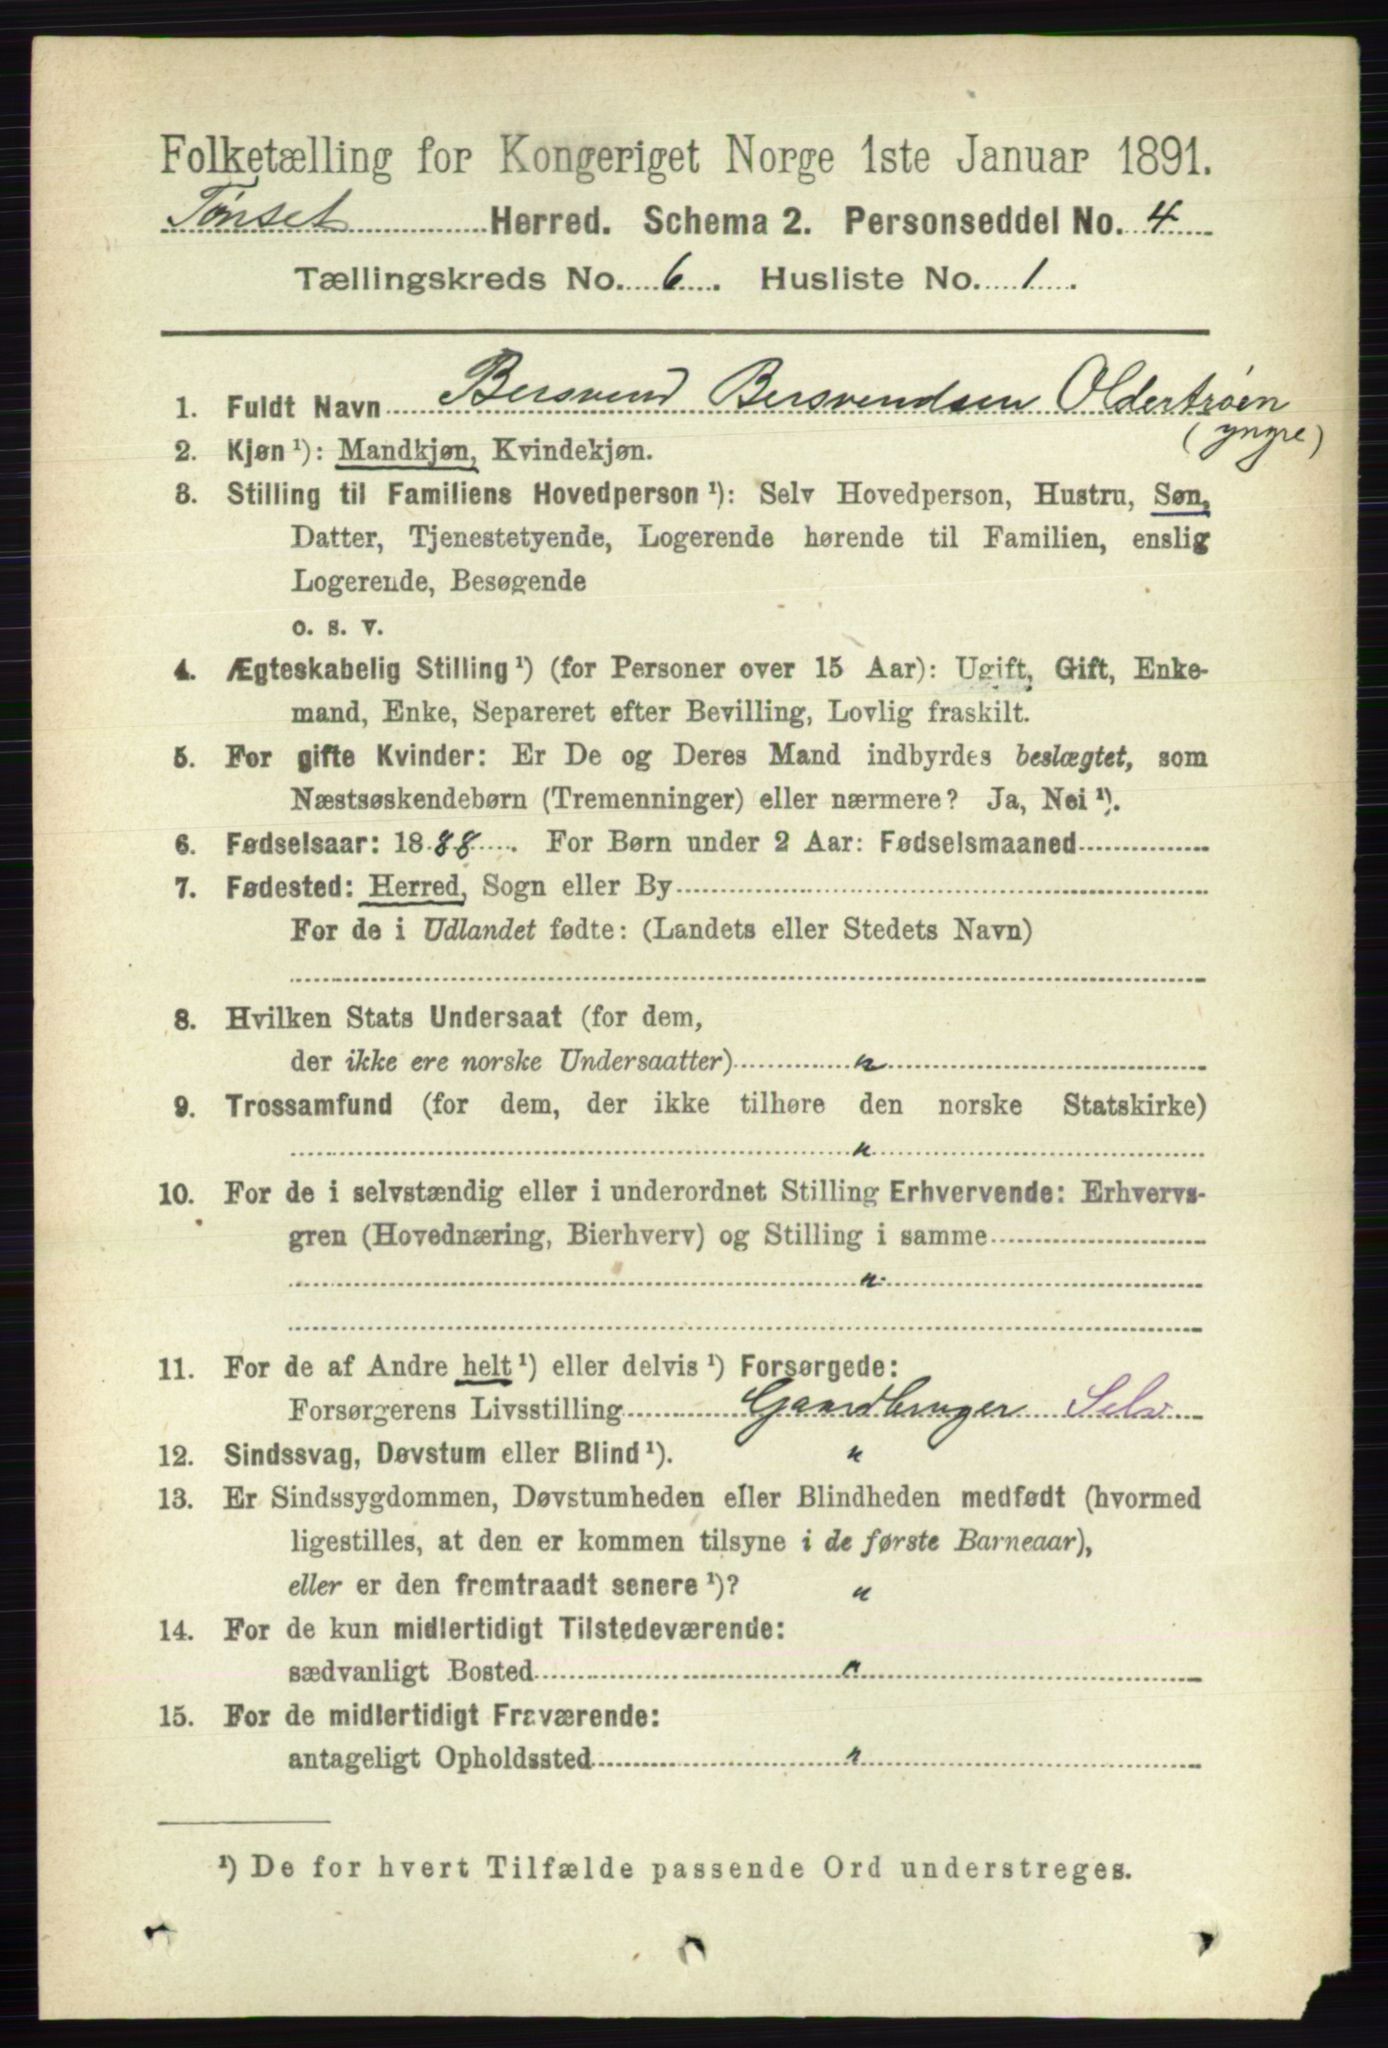 Folketælling for Kongeriget Norge 1ste Januar 1891.
Tønset Herred. Schema 2. Personseddel No. 4
Tællingskreds No. 6. Husliste No. 1.
1. Fuldt Navn Bersvend Bersvendsen Oldertrøen
(yngre)
2. Kjøn¹): Mandkjøn, Kvindekjøn.
3. Stilling til Familiens Hovedperson¹): Selv Hovedperson, Hustru, Søn,
Datter, Tjenestetyende, Logerende hørende til Familien, enslig
Logerende, Besøgende
o. s. v.
4. Ægteskabelig Stilling¹) (for Personer over 15 Aar): Ugift, Gift, Enke-
mand, Enke, Separeret efter Bevilling, Lovlig fraskilt.
5. For gifte Kvinder: Er De og Deres Mand indbyrdes beslægtet, som
Næstsøskendebørn (Tremenninger) eller nærmere? Ja, Nei¹).
6. Fødselsaar: 1888. For Børn under 2 Aar: Fødselsmaaned
7. Fødested: Herred, Sogn eller By
For de i Udlandet fødte: (Landets eller Stedets Navn)
8. Hvilken Stats Undersaat (for dem,
der ikke ere norske Undersaatter) "
9. Trossamfund (for dem, der ikke tilhøre den norske Statskirke)
"
10. For de i selvstændig eller i underordnet Stilling Erhvervende: Erhvervs-
gren (Hovednæring, Bierhverv) og Stilling i samme
"
11. For de af Andre helt¹) eller delvis¹) Forsørgede:
Forsørgerens Livsstilling Gaardbruger Selv
12. Sindssvag, Døvstum eller Blind¹). "
13. Er Sindssygdommen, Døvstumheden eller Blindheden medfødt (hvormed
ligestilles, at den er kommen tilsyne i de første Barneaar),
eller er den fremtraadt senere¹)? "
14. For de kun midlertidigt Tilstedeværende:
sædvanligt Bosted "
15. For de midlertidigt Fraværende:
antageligt Opholdssted "
¹) De for hvert Tilfælde passende Ord understreges.